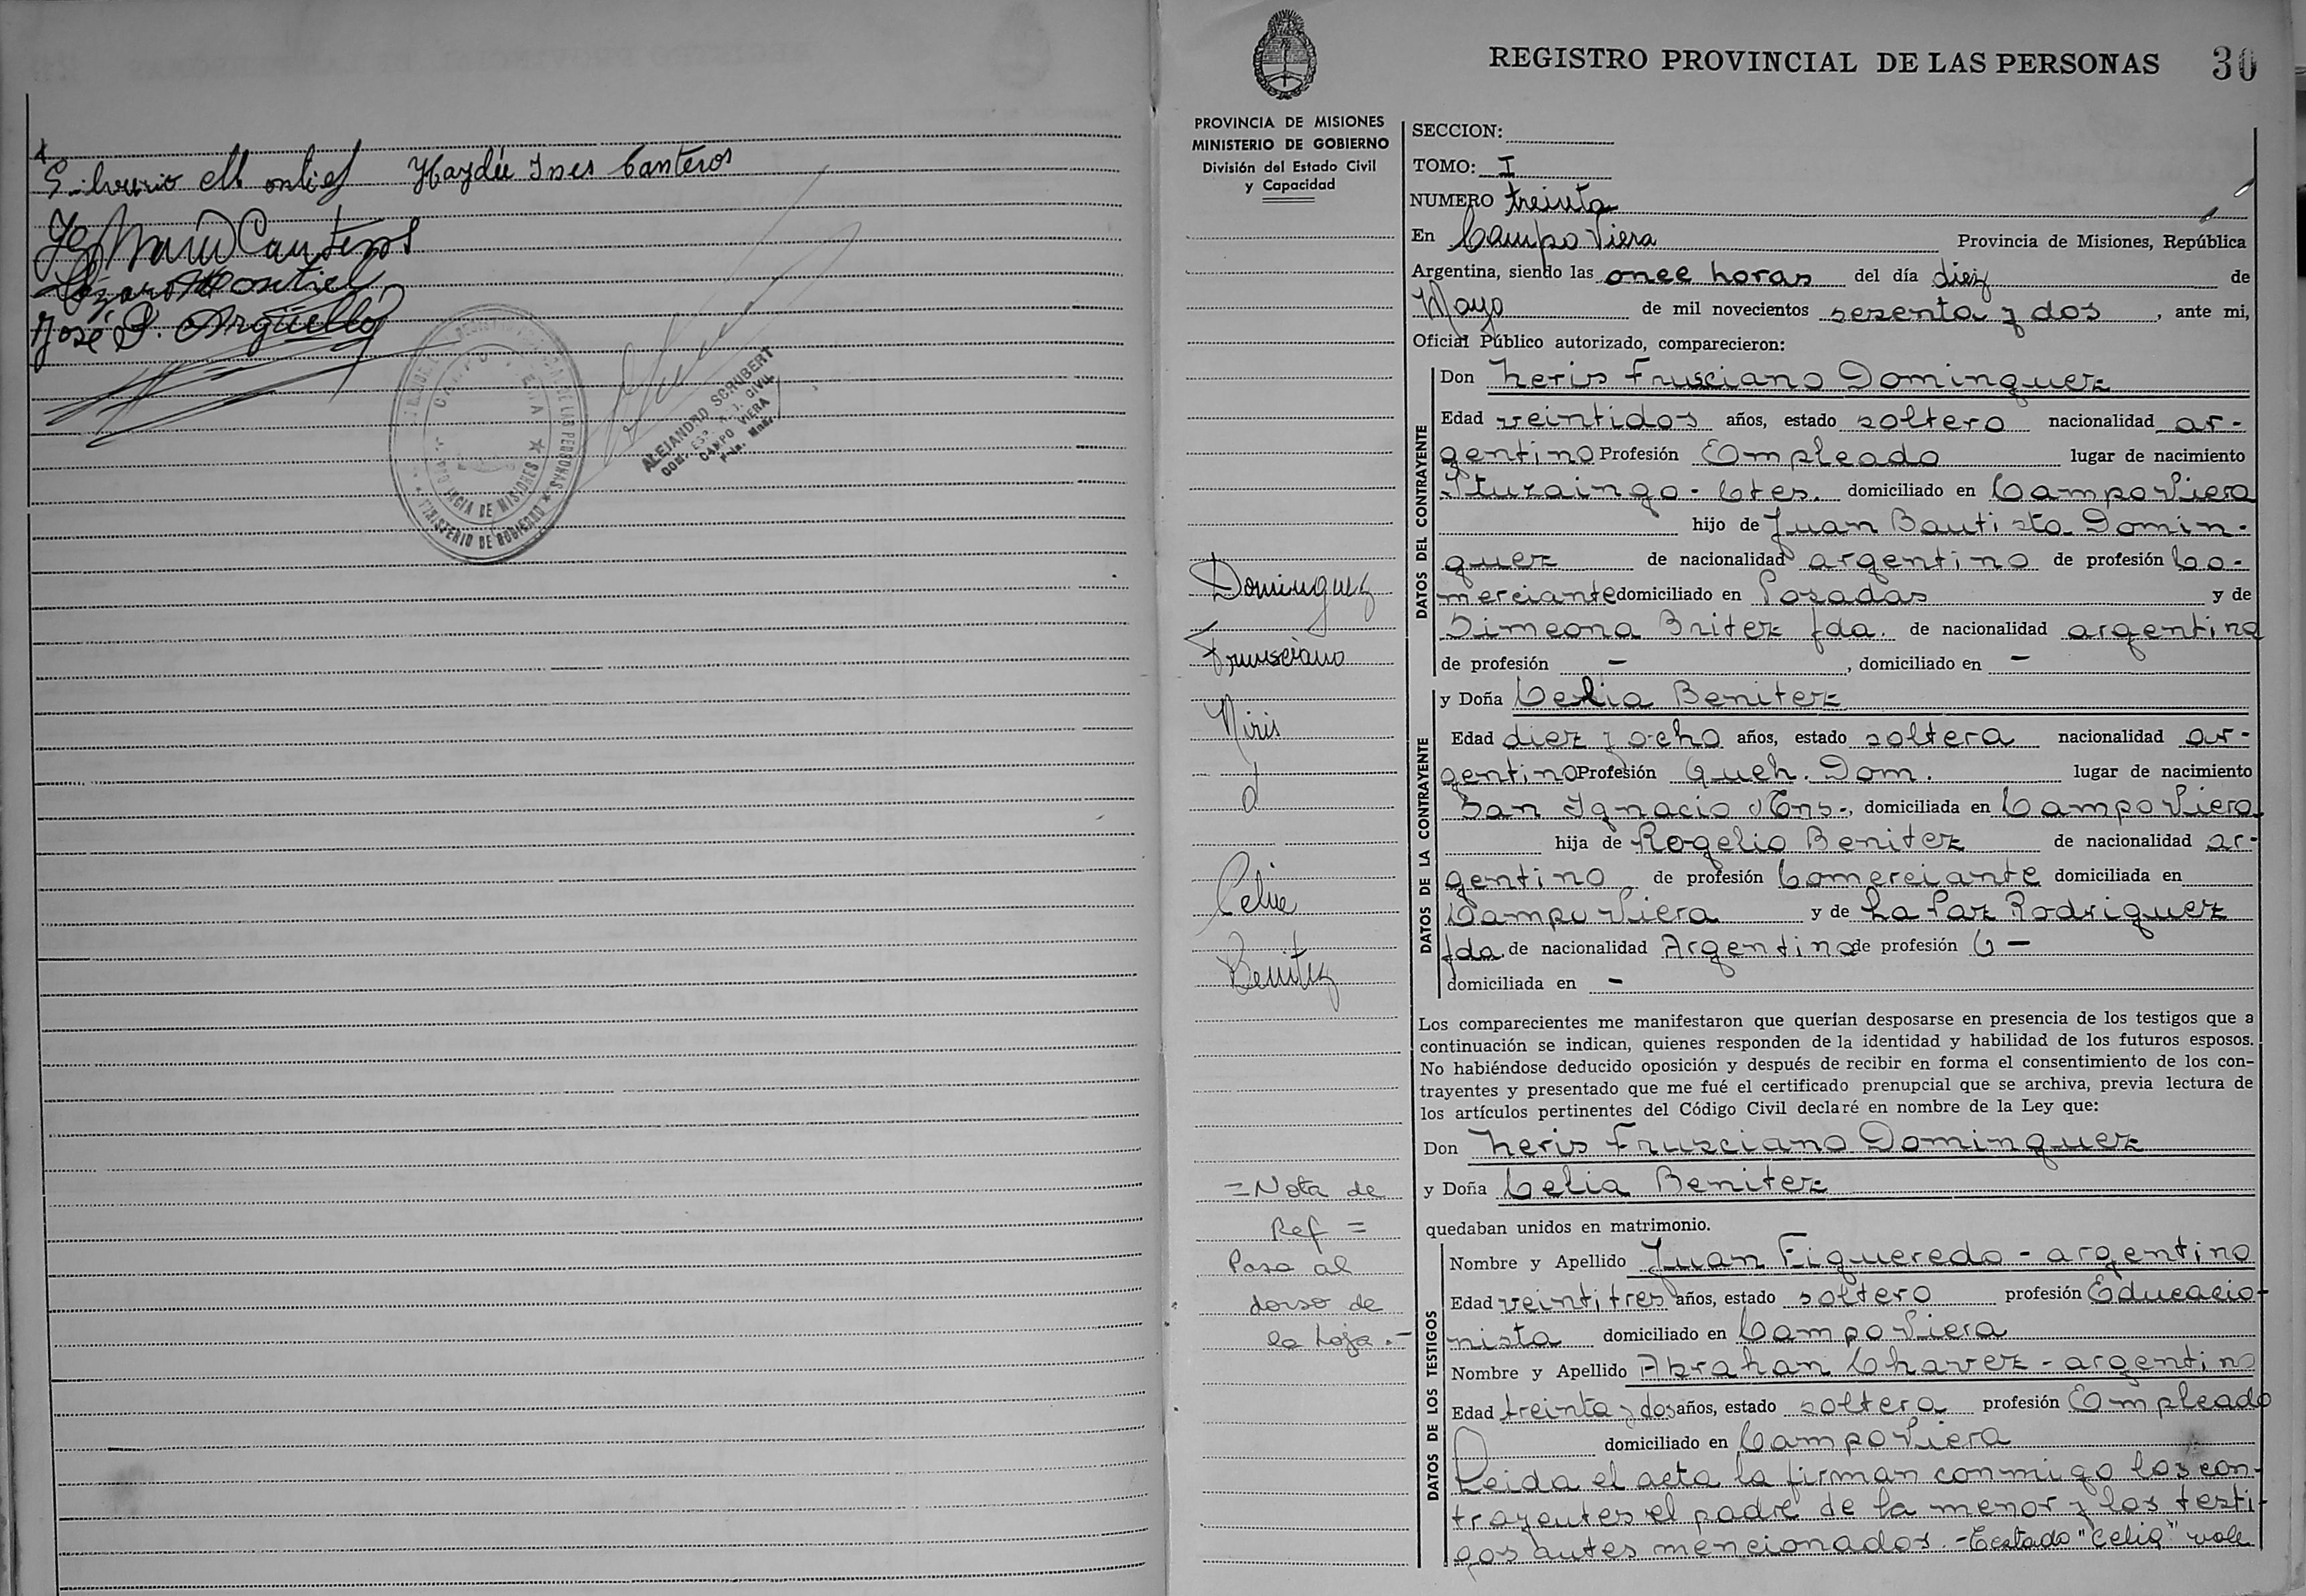 Silverio Montiel Haydée Ines Canteros
Canteros
Lázaro Montiel
José P. Argüello
CAMPO VIERA
PROVINCIA DE MISIONES
MINISTERIO DE GOBIERNO
ALEJANDRO SCHUBERT
CAMPO VIERA
REGISTRO PROVINCIAL DE LAS PERSONAS 30
PROVINCIA DE MISIONES
MINISTERIO DE GOBIERNO
División del Estado Civil
y Capacidad
Dominguez
Frusciano
Niris
d
Celia
Benitez
=Nota de
Ref =
Pasa al
dorso de
la hoja.-
SECCION:
TOMO: I
NUMERO treinta
En Campo Viera Provincia de Misiones, República
Argentina, siendo las once horas del día diez de
Mayo de mil novecientos sesenta y dos, ante mi,
Oficial Público autorizado, comparecieron:
DATOS DEL CONTRAYENTE
Don Neris Frusciano Dominguez
Edad veintidos años, estado soltero nacionalidad ar-
gentino Profesión Empleado lugar de nacimiento
Ituzaingo - Ctes. domiciliado en Campo Viera
hijo de Juan Bautista Domin-
guez de nacionalidad argentino de profesión Co-
merciante domiciliado en Posadas y de
Simeona Britez fda. de nacionalidad argentina
de profesión -, domiciliado en -
DATOS DE LA CONTRAYENTE
y Doña Celia Benitez
Edad diez y ocho años, estado soltera nacionalidad ar-
gentino Profesión Queh. Dom. lugar de nacimiento
San Ignacio Mns-, domiciliada en Campo Viera
hija de Rogelio Benitez de nacionalidad ar-
gentino de profesión Comerciante domiciliada en
Campo Viera y de La Paz Rodriguez
fda. de nacionalidad Argentina de profesión -
domiciliada en -
Los comparecientes me manifestaron que querían desposarse en presencia de los testigos que a
continuación se indican, quienes responden de la identidad y habilidad de los futuros esposos.
No habiéndose deducido oposición y después de recibir en forma el consentimiento de los con-
trayentes y presentado que me fué el certificado prenupcial que se archiva, previa lectura de
los artículos pertinentes del Código Civil declaré en nombre de la Ley que:
Don Neris Frusciano Dominguez
y Doña Celia Benitez
quedaban unidos en matrimonio.
DATOS DE LOS TESTIGOS
Nombre y Apellido Juan Figueredo - argentino
Edad veintitres años, estado soltero profesión Educacio-
nista domiciliado en Campo Viera
Nombre y Apellido Abrahan Chavez - argentino
Edad treinta y dos años, estado soltera profesión Empleado
domiciliado en Campo Viera
Leida el acta la firman conmigo los con-
trayentes el padre de la menor y los testi-
gos antes mencionados. - Testado "Celia" vale